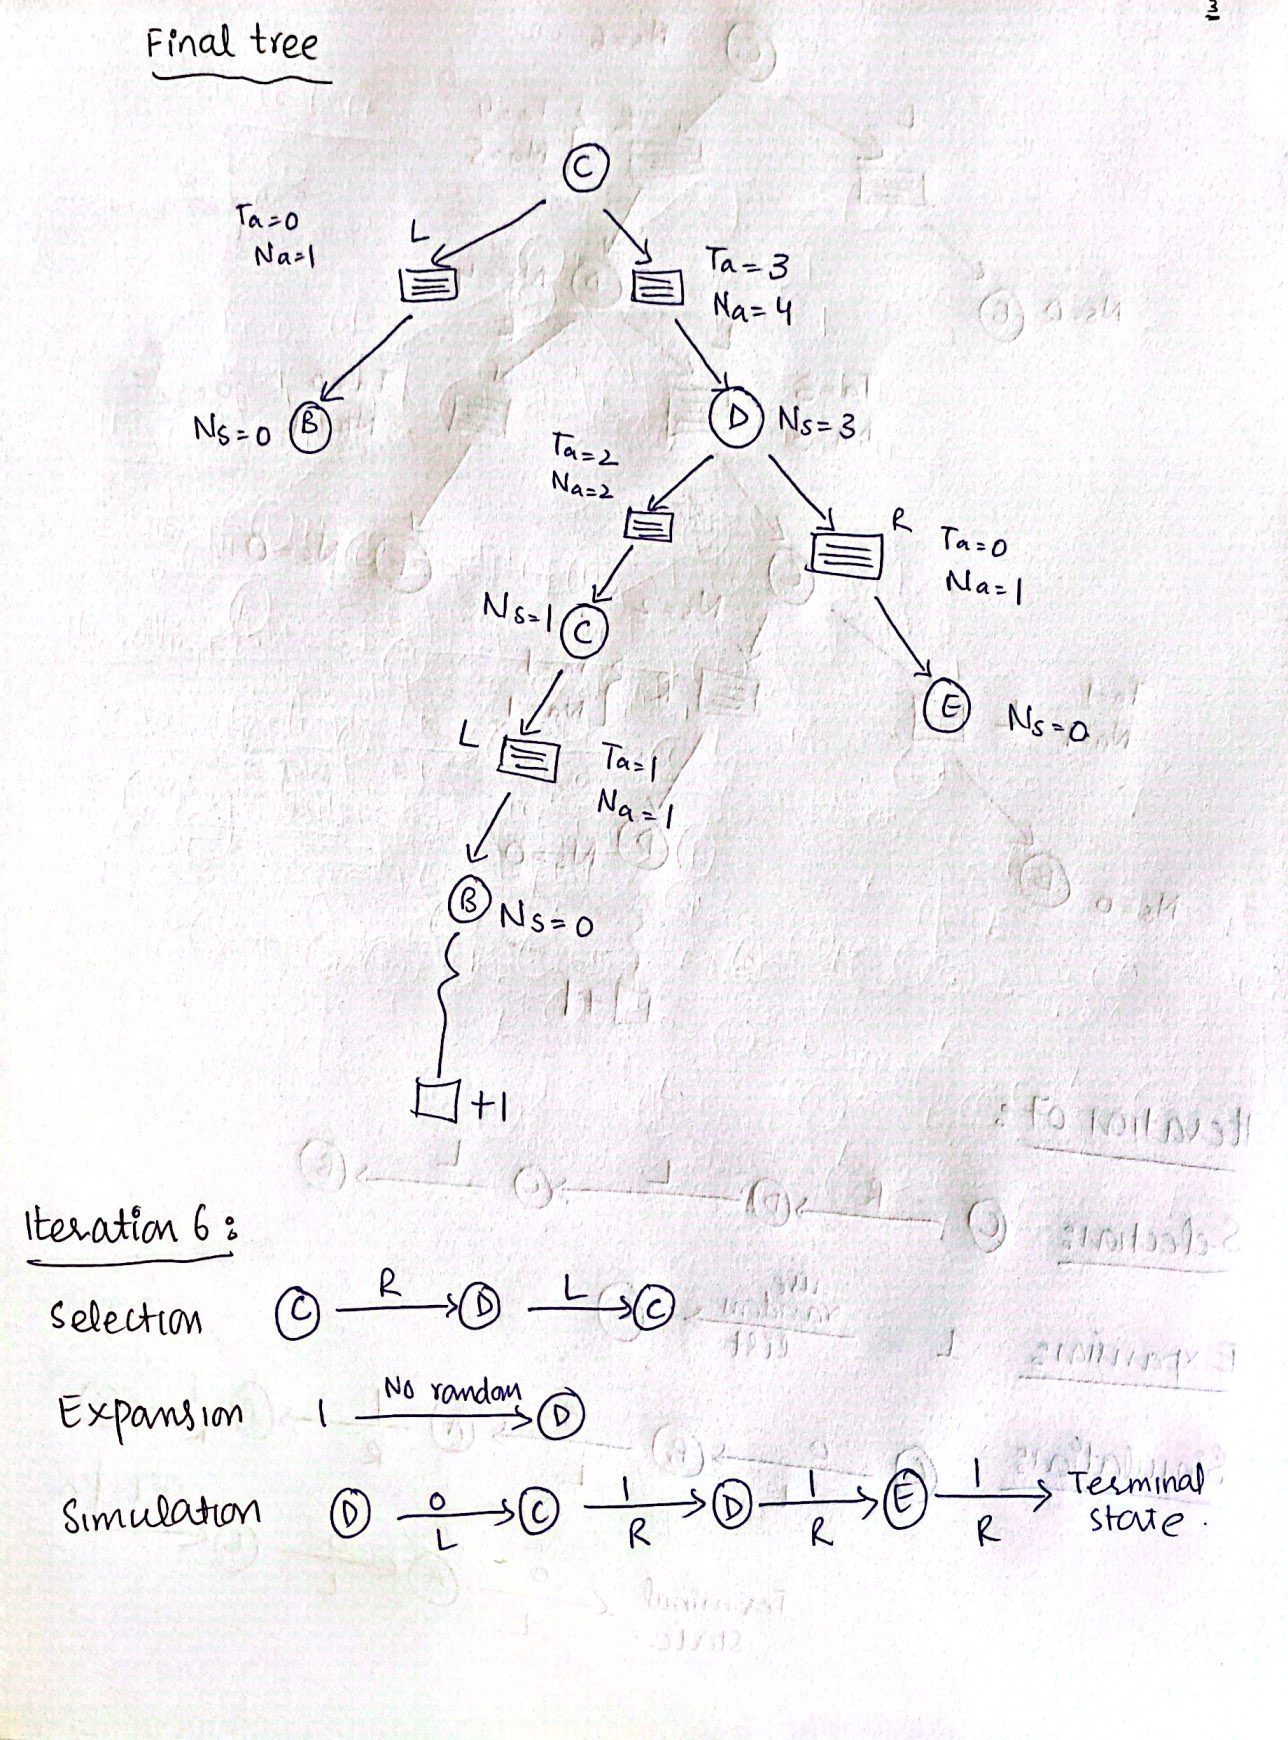 3
Final tree
C
Ta=0
Na=1
L
Ta=3
Na=4
Ns=0 B
D Ns=3
Ta=2
Na=2
R
Ta=0
Na=1
Ns=1 C
E Ns=0
L
Ta=1
Na=1
B Ns=0
+1
Iteration 6:
Selection C R D L C
Expansion 1 No random D
Simulation D 0 L C 1 R D 1 R E 1 R Terminal state.